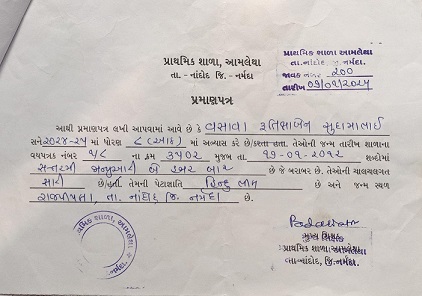 પ્રાથમિક શાળા, આમલેથા
તા. - નાંદોદ જિ. - નર્મદા
પ્રાથમિક શાળા આમલેથા
તા.નાંદોદ, જી.નર્મદા
જાવક નંબર 200
તારીખ 09/09/2024
પ્રમાણપત્ર
આથી પ્રમાણપત્ર લખી આપવામાં આવે છે કે વસાવા
સને ૨૦૨૪-૨૫ માં ધોરણ ૮ (આઠ) માં અભ્યાસ કરે છે/કરતા હતા. તેઓની જન્મ તારીખ શાળાના
વયપત્રક નંબર ના ક્રમ ૩૫૦૨ મુજબ તા. શબ્દોમાં
સત્તરમી જાન્યુઆરી બે હજાર બાર છે જે બરાબર છે. તેઓની ચાલચલગત
સારી છે/હતી. તેમની પેટાજાતિ હિન્દુ ભીલ છે અને જન્મ સ્થળ
રાજપીપળા, તા. નાંદોદ જિ. નર્મદા છે.
પ્રાથમિક શાળા, આમલેથા
મુખ્ય શિક્ષક
પ્રાથમિક શાળા આમલેથા
તા-નાંદોદ, જિ.નર્મદા.